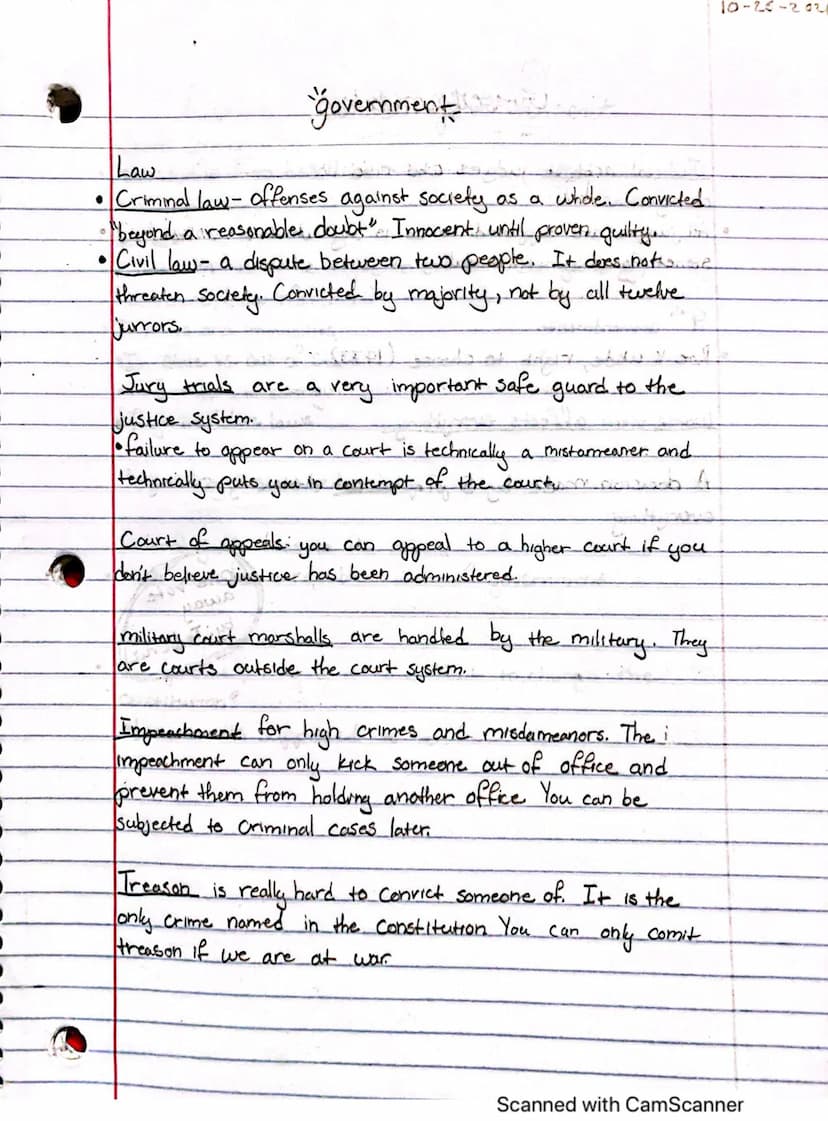 10-25-202
government
Law
• Criminal law - offenses against society as a whole. Convicted
"beyond a reasonable doubt". Innocent until proven guilty.
• Civil law - a dispute between two people. It does not
threaten society. Convicted by majority, not by all twelve
jurrors.
Jury trials are a very important safe guard to the
justice system.
• failure to appear on a court is technically a mistameaner and
technically puts you in contempt of the court.
Court of appeals: you can appeal to a higher court if you
don't believe justice has been administered.
military court marshalls are handled by the military. They
are courts outside the court system.
Impeachment for high crimes and misdameanors. The i
impeachment can only kick someone out of office and
prevent them from holding another office You can be
subjected to criminal cases later.
Treason is really hard to convict someone of. It is the
only crime named in the constitution You can only comit
treason if we are at war.
Scanned with CamScanner